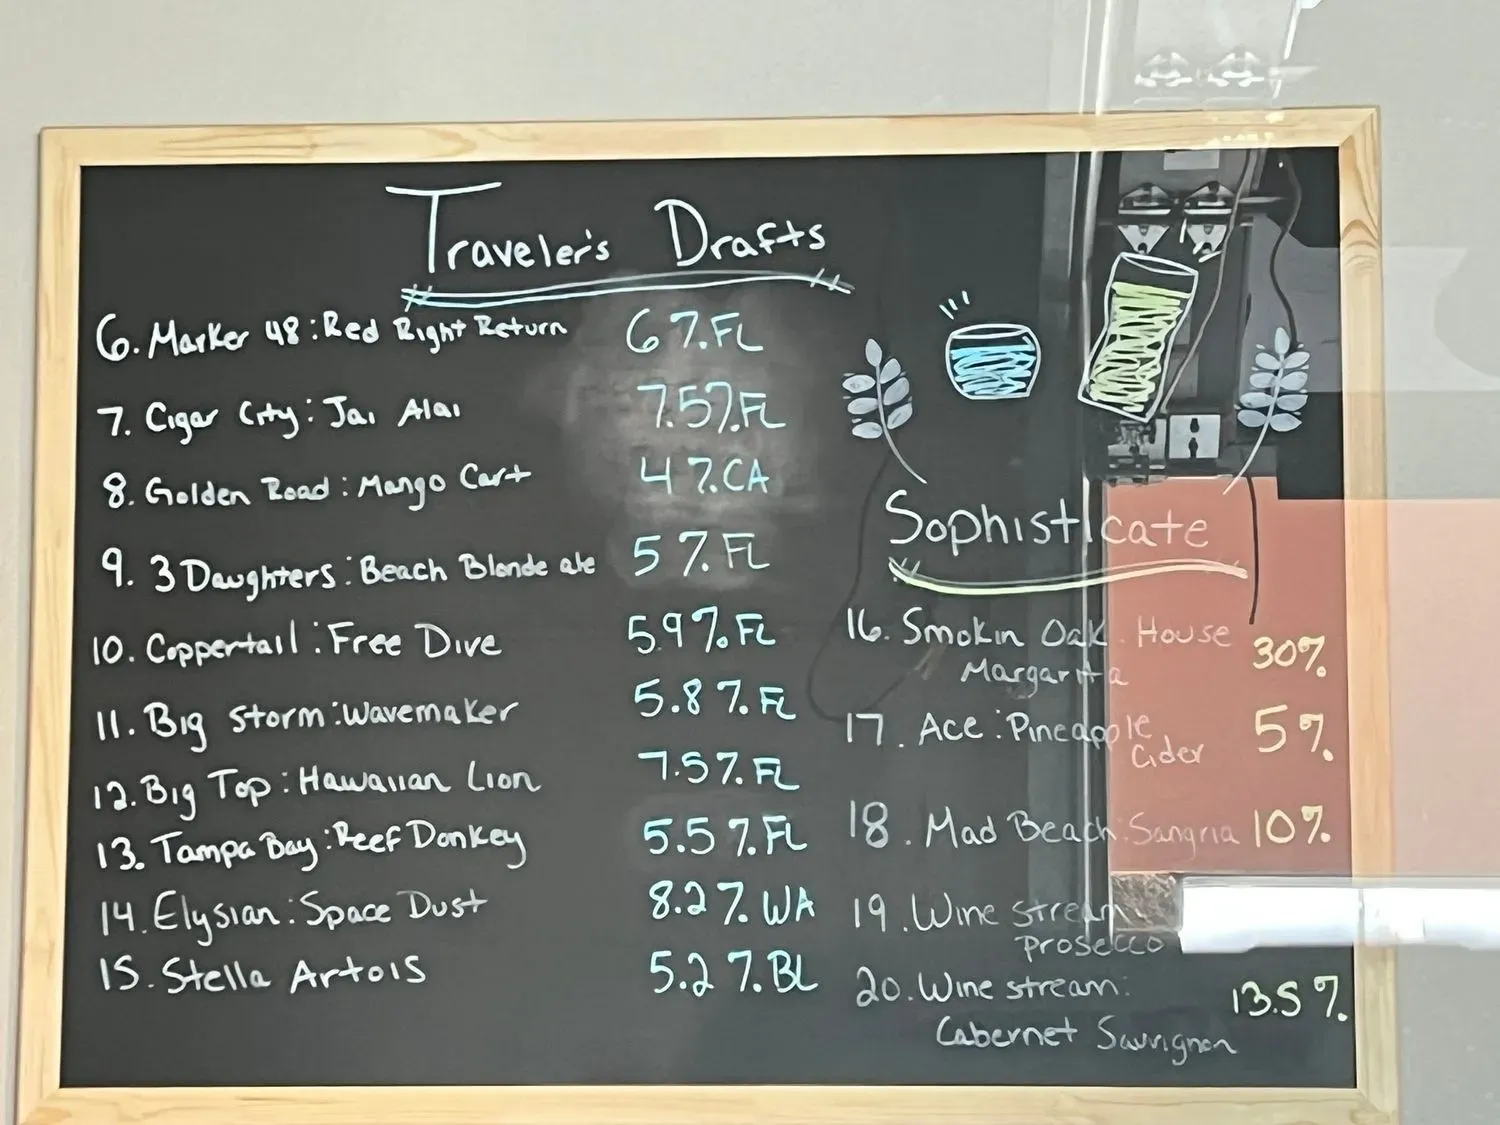 Traveler's Drafts
6. Marker 48: Red Right Return 6%. FL
7. Cigar City: Jai Alai 7.5%. FL
8. Golden Road: Mango Cart 4%. CA
9. 3 Daughters: Beach Blonde ale 5%. FL
10. Coppertail: Free Dive 5.9%. FL
11. Big Storm: Wavemaker 5.8%. FL
12. Big Top: Hawaiian Lion 7.5%. FL
13. Tampa Bay: Reef Donkey 5.5%. FL
14. Elysian: Space Dust 8.2%. WA
15. Stella Artois 5.2%. BL
Sophisticate
16. Smokin Oak: House
Margarita 30%
17. Ace: Pineapple
Cider 5%
18. Mad Beach: Sangria 10%
19. Wine stream:
prosecco
20. Wine stream: 13.5%
Cabernet Sauvignon